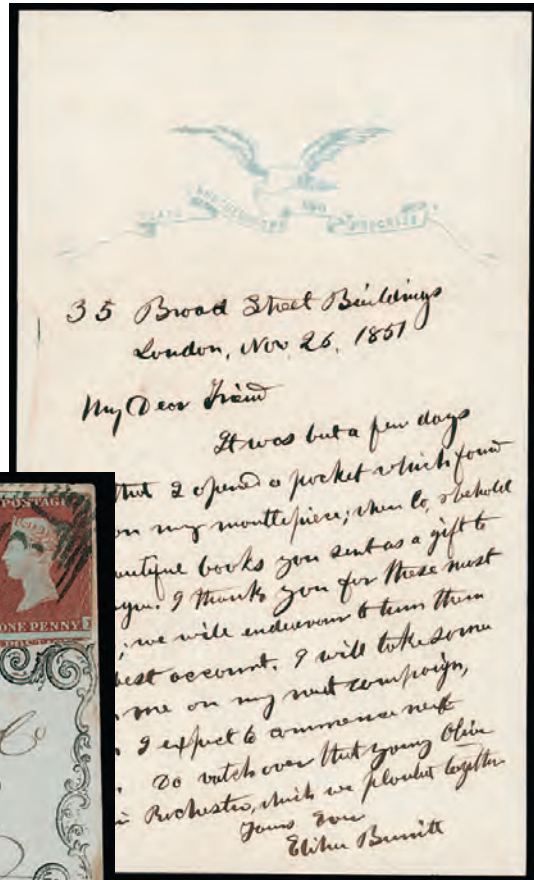 PEACE BROTHERHOOD AND PROGRESS
35 Broad Street Buildings
London, Nov. 26, 1851
My Dear Friend
It was but a few days
that I opened a pocket which found
on my mantlepiece; when lo, & behold
books you sent as a gift to
you. I thank you for these most
; we will endeavour to turn them
best account. I will take some
me on my next campaign,
I expect to commence next
Do watch over that young Olive
Rochester, which we planted together
Yours Ever
Elihu Burritt
POSTAGE
ONE PENNY